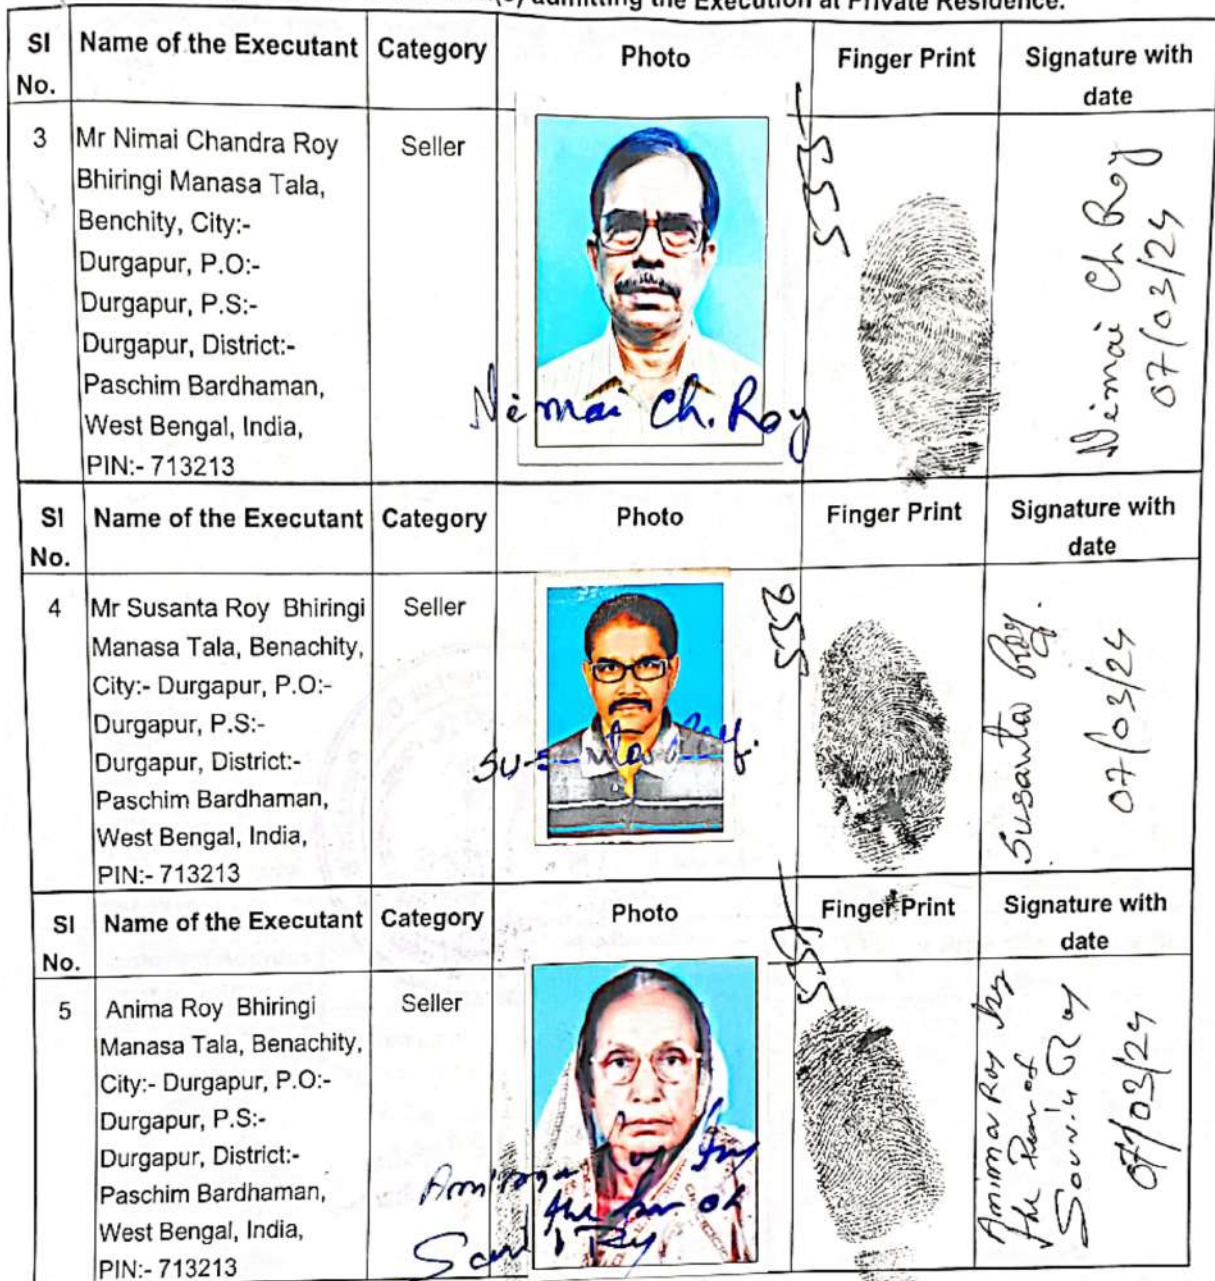 admitting the Execution at Private Residence.
Sl No. Name of the Executant Category Photo Finger Print Signature with date
3 Mr Nimai Chandra Roy Seller
Bhiringi Manasa Tala,
Benchity, City:-
Durgapur, P.O:-
Durgapur, P.S:-
Durgapur, District:-
Paschim Bardhaman,
West Bengal, India,
PIN:- 713213
Nemai Ch. Roy
Nemai Ch Roy
07/03/24
Sl No. Name of the Executant Category Photo Finger Print Signature with date
4 Mr Susanta Roy Bhiringi Seller
Manasa Tala, Benachity,
City:- Durgapur, P.O:-
Durgapur, P.S:-
Durgapur, District:-
Paschim Bardhaman,
West Bengal, India,
PIN:- 713213
Susanta Roy.
Susanta Roy.
07/03/24
Sl No. Name of the Executant Category Photo Finger Print Signature with date
5 Anima Roy Bhiringi Seller
Manasa Tala, Benachity,
City:- Durgapur, P.O:-
Durgapur, P.S:-
Durgapur, District:-
Paschim Bardhaman,
West Bengal, India,
PIN:- 713213
Anima Roy by
the of
Roy
07/03/24